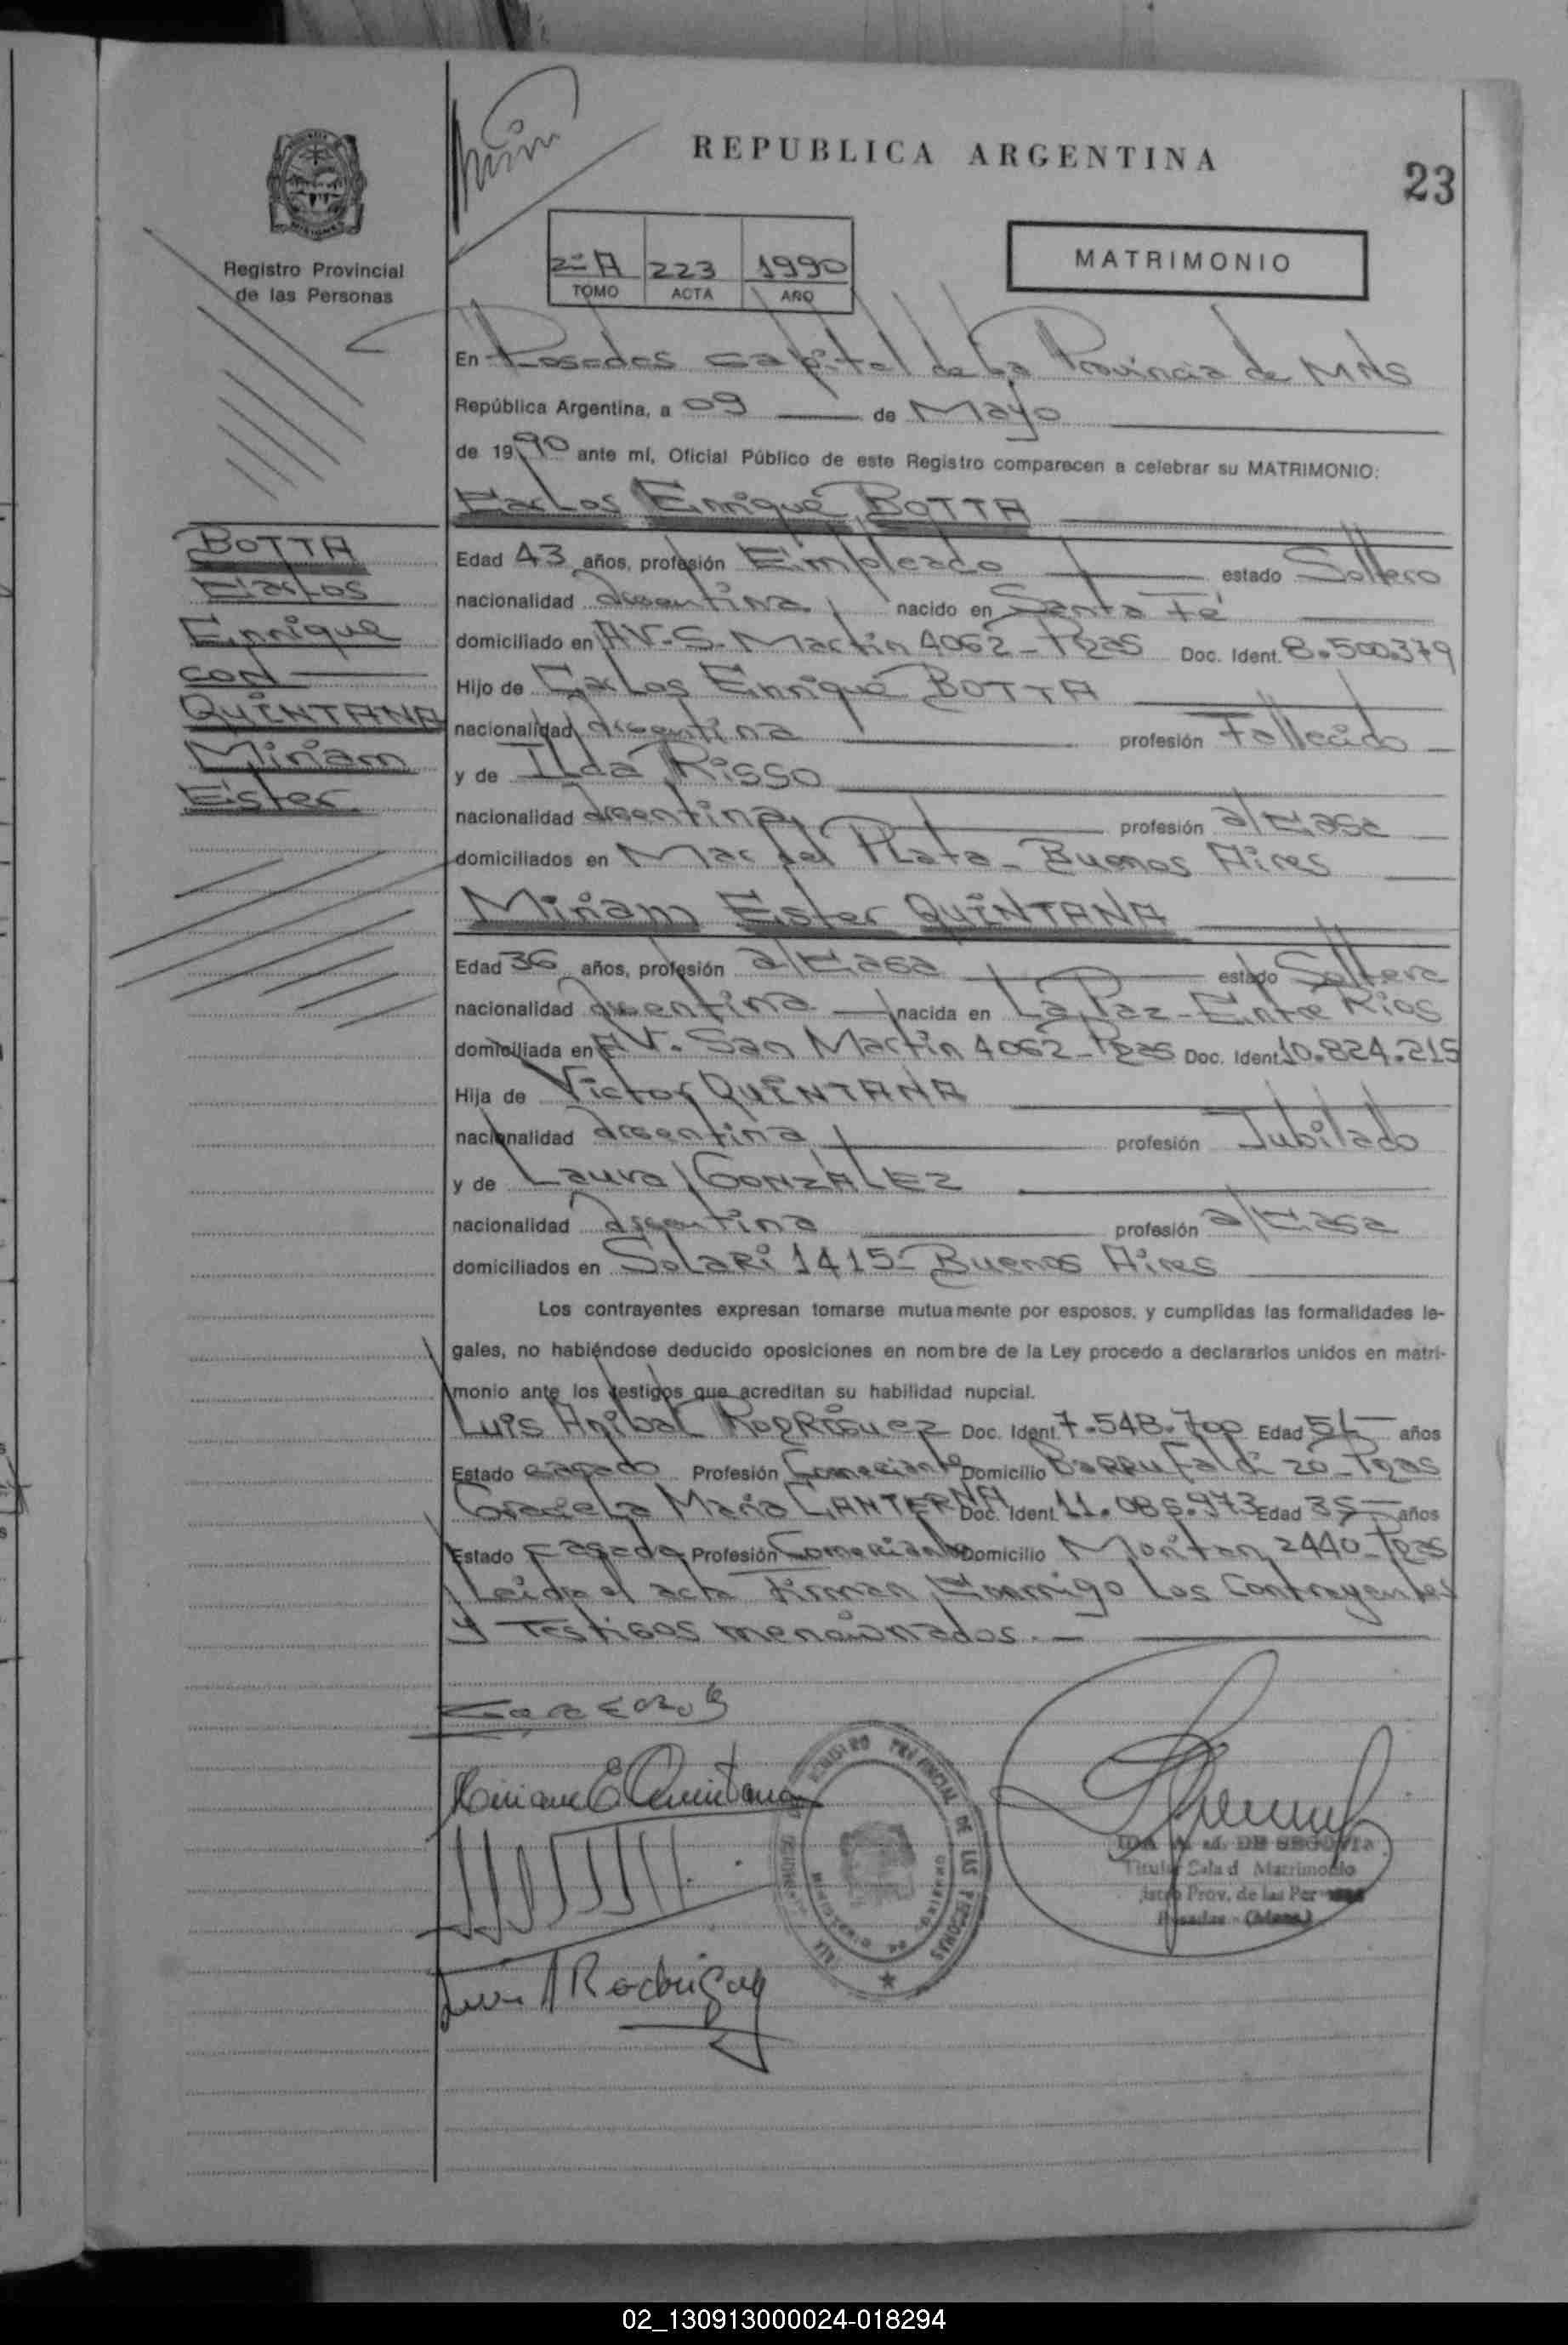 REPUBLICA ARGENTINA
23
Registro Provincial
de las Personas
2º A 223 1990
TOMO ACTA AÑO
MATRIMONIO
En Posadas capital de La Provincia de MNS
República Argentina, a 09 de Mayo
de 1990 ante mí, Oficial Público de este Registro comparecen a celebrar su MATRIMONIO:
Carlos Enrique BOTTA
BOTTA
Carlos
Enrique
con
QUINTANA
Miriam
Ester
Edad 43 años, profesión Empleado estado Soltero
nacionalidad argentina nacido en Santa Fé
domiciliado en AV. S. Martín 4062 - Pdas Doc. Ident. 8.500.379
Hijo de Carlos Enrique BOTTA
nacionalidad argentina profesión Fallecido
y de Ilda Risso
nacionalidad argentina profesión a/casa
domiciliados en Mar del Plata - Buenos Aires
Miriam Ester QUINTANA
Edad 36 años, profesión a/casa estado Soltera
nacionalidad argentina nacida en La Paz - Entre Rios
domiciliada en AV. San Martín 4062 - Pdas Doc. Ident. 10.824.215
Hija de Victor QUINTANA
nacionalidad argentina profesión Jubilado
y de Laura GONZALEZ
nacionalidad argentina profesión a/casa
domiciliados en Solari 1415 - Buenos Aires
Los contrayentes expresan tomarse mutuamente por esposos, y cumplidas las formalidades le-
gales, no habiéndose deducido oposiciones en nombre de la Ley procedo a declararlos unidos en matri-
monio ante los testigos que acreditan su habilidad nupcial.
Luis Anibal Rodriguez Doc. Ident. 7.548.700 Edad años
Estado casado Profesión Comerciante Domicilio Barrufaldi 20 - Pdas
Graciela Maria CANTERNA Doc. Ident. 11.086.973 Edad 35 años
Estado casada Profesión Comerciante Domicilio 2440 - Pdas
Leida el acta firman conmigo Los Contrayentes
y Testigos mencionados.-
Miriam E Quintana
REGISTRO PROVINCIAL DE LAS PERSONAS
DE SEGOVIA
Titular Sala d Matrimonio
Prov. de las Per
Posadas - (Mnes.)
Luis A Rodriguez
02_130913000024-018294